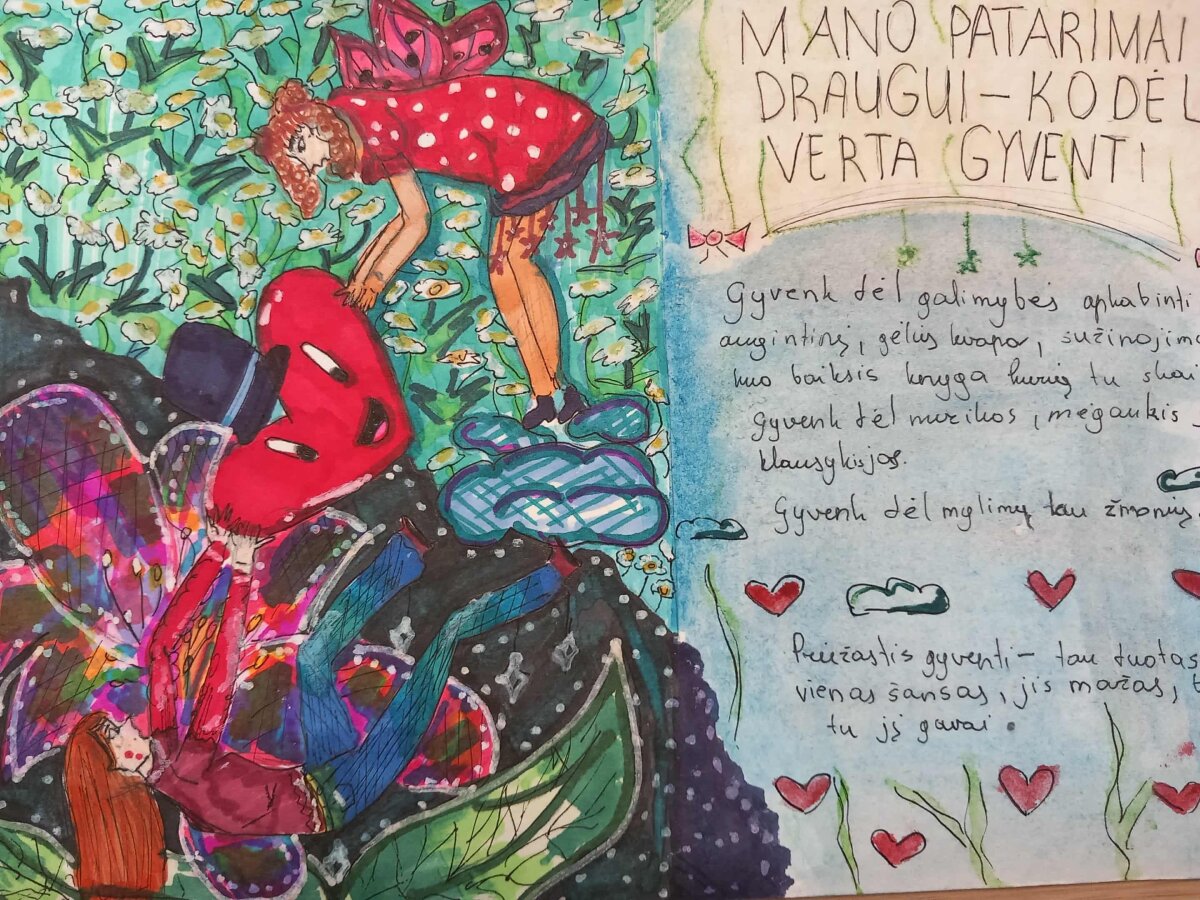 MANO PATARIMAI
DRAUGUI – KODĖL
VERTA GYVENTI
Gyvenk dėl galimybės apkabinti
augintinį, gėlių kvapo, sužinojimo
kuo baiksis knyga kurią tu skai
Gyvenk dėl muzikos, mėgaukis –
klausykisjos.
Gyvenk dėl mylimų tau žmonių.
Priežastis gyventi – tau duotas
vienas šansas, jis mažas, t
tu jį gavai.